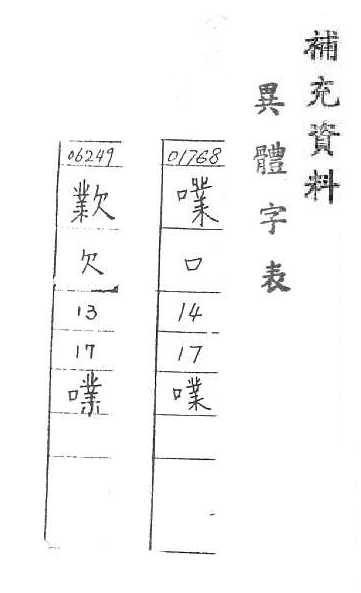 補充資料
異體字表
01768
口
14
17
06249
欠
13
17